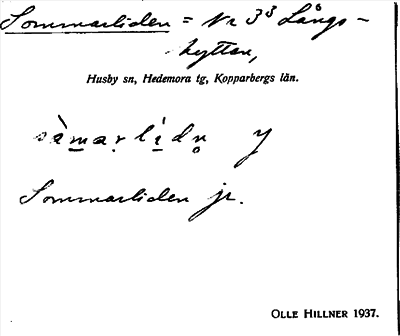 Sommarliden = Nr 3³ Långs-
hyttan,
Husby sn, Hedemora tg, Kopparbergs län.
sàmarlìdn̥ y
Sommarliden jr.
OLLE HILLNER 1937.